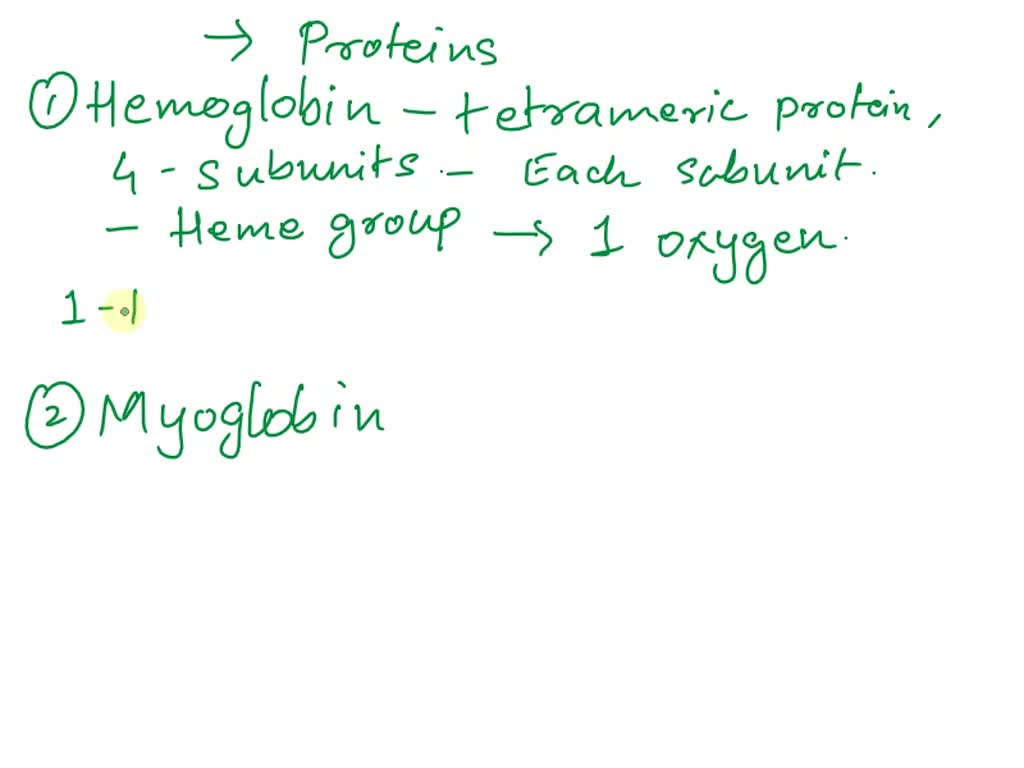 → Proteins
① Hemoglobin - tetrameric protein,
4 - subunits - Each subunit.
- Heme group → 1 oxygen.
1 -
② Myoglobin